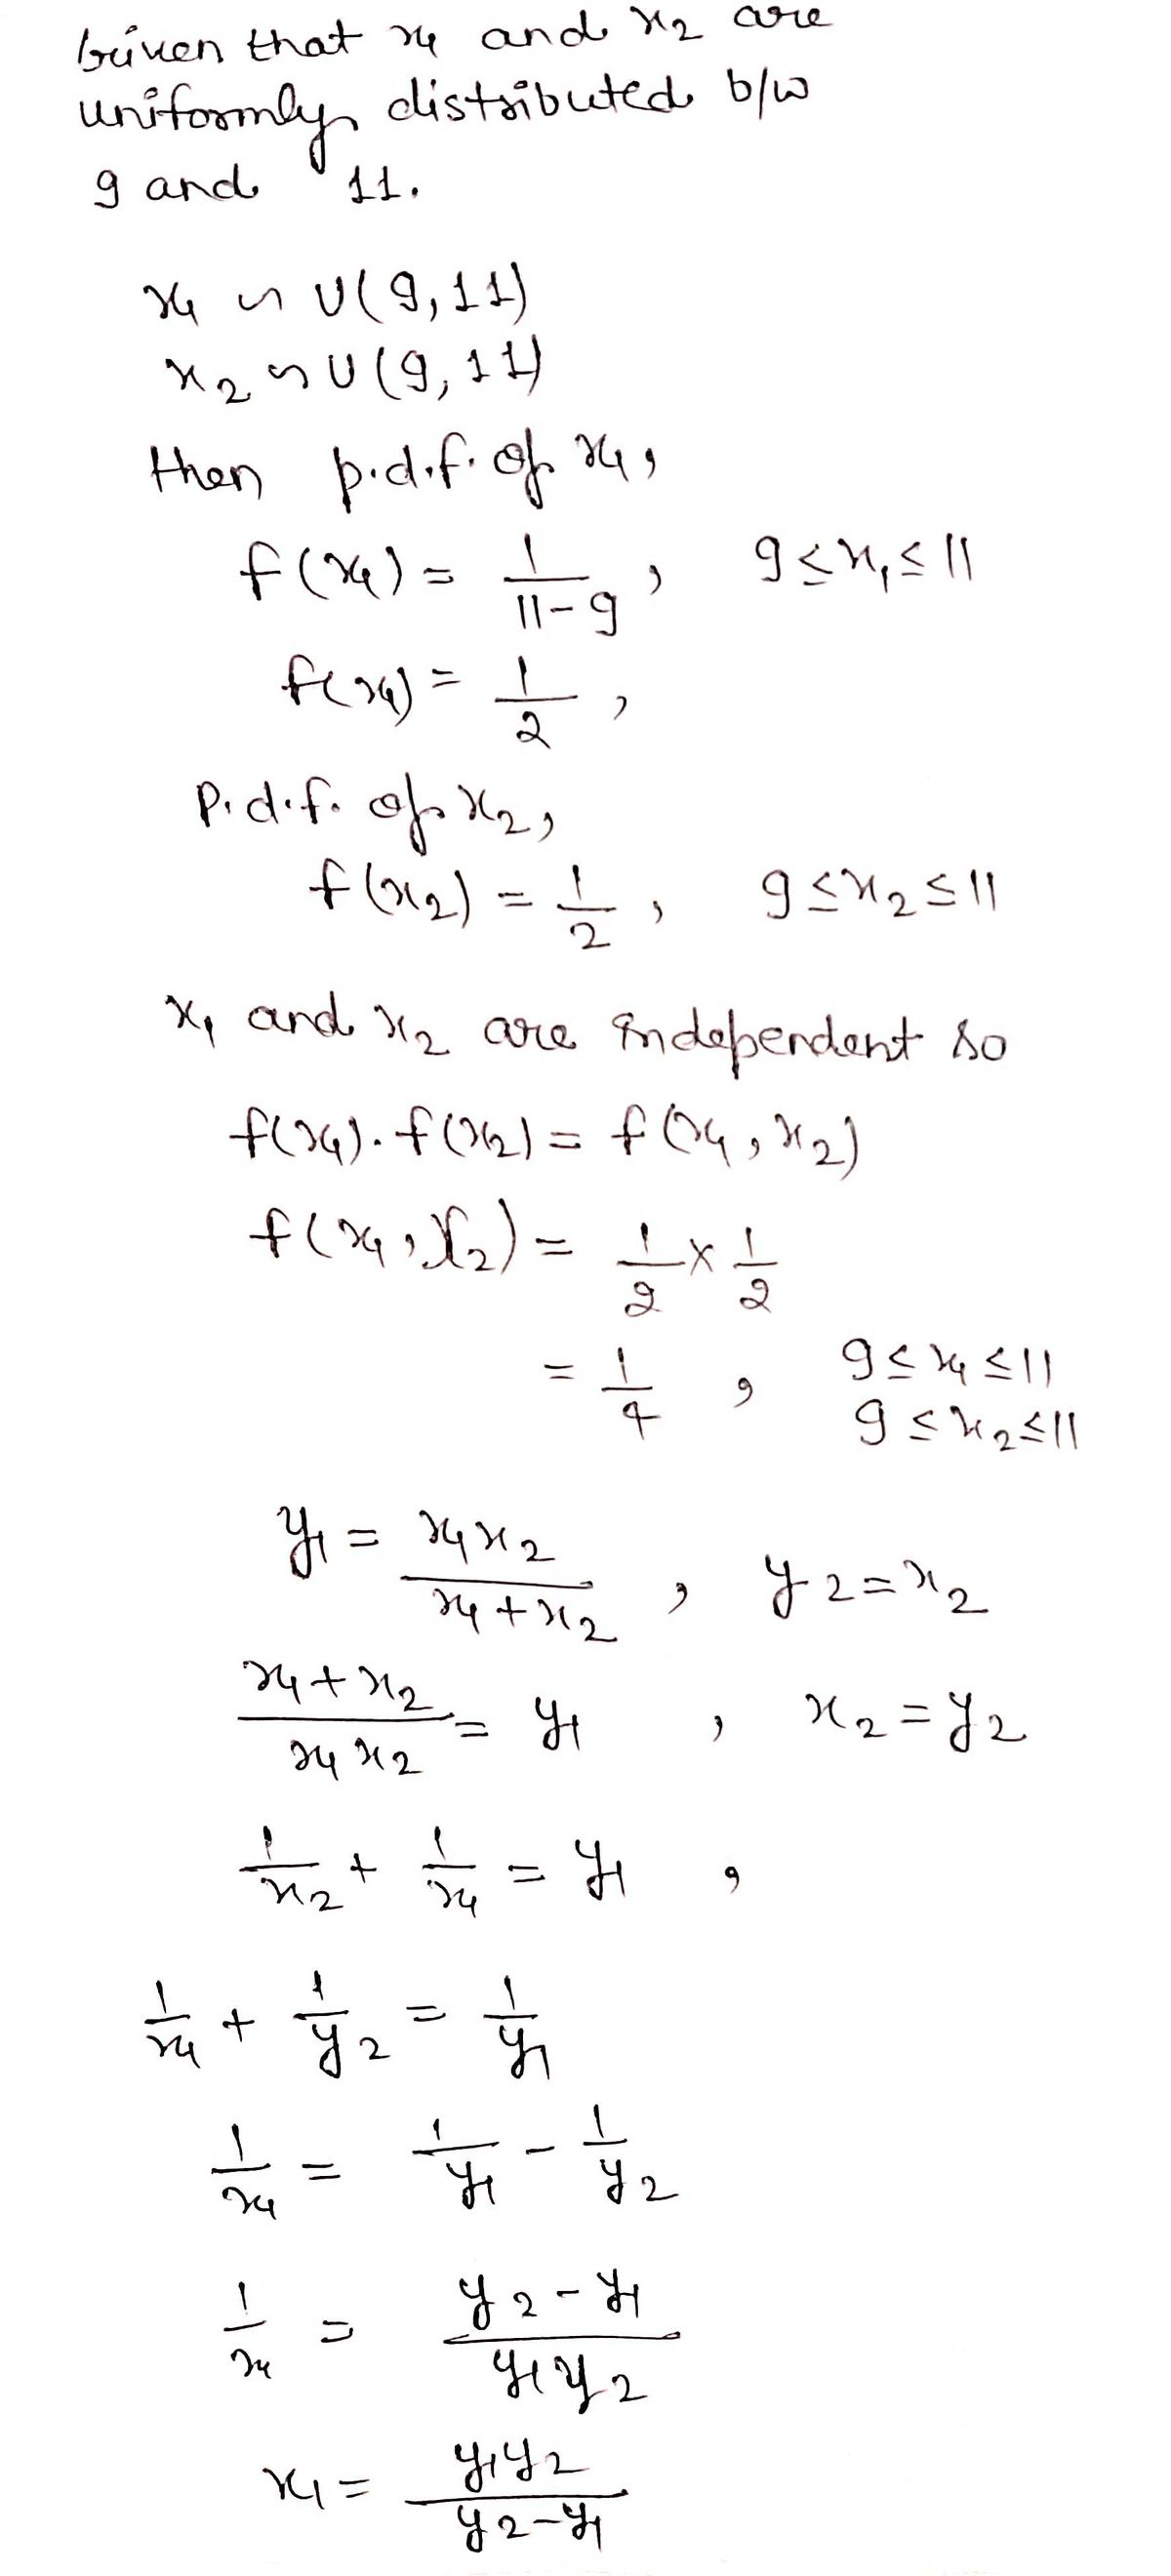 Given that x₁ and x₂ are
uniformly distributed b/w
9 and 11.
x₁ ∽ U(9,11)
x₂ ∽ U(9,11)
then p.d.f. of x₁,
f(x₁) = 1/(11-9), 9≤x₁≤11
f(x₁) = 1/2,
P.d.f. of x₂,
f(x₂) = 1/2, 9≤x₂≤11
x₁ and x₂ are independent so
f(x₁).f(x₂) = f(x₁,x₂)
f(x₁,x₂) = 1/2 × 1/2
= 1/4, 9≤x₁≤11
9≤x₂≤11
y₁ = x₁x₂/(x₁+x₂), y₂=x₂
(x₁+x₂)/(x₁x₂) = y₁, x₂=y₂
1/x₂ + 1/x₁ = y₁,
1/x₁ + 1/y₂ = 1/y₁
1/x₁ = 1/y₁ - 1/y₂
1/x₁ = (y₂-y₁)/(y₁y₂)
x₁ = y₁y₂/(y₂-y₁)